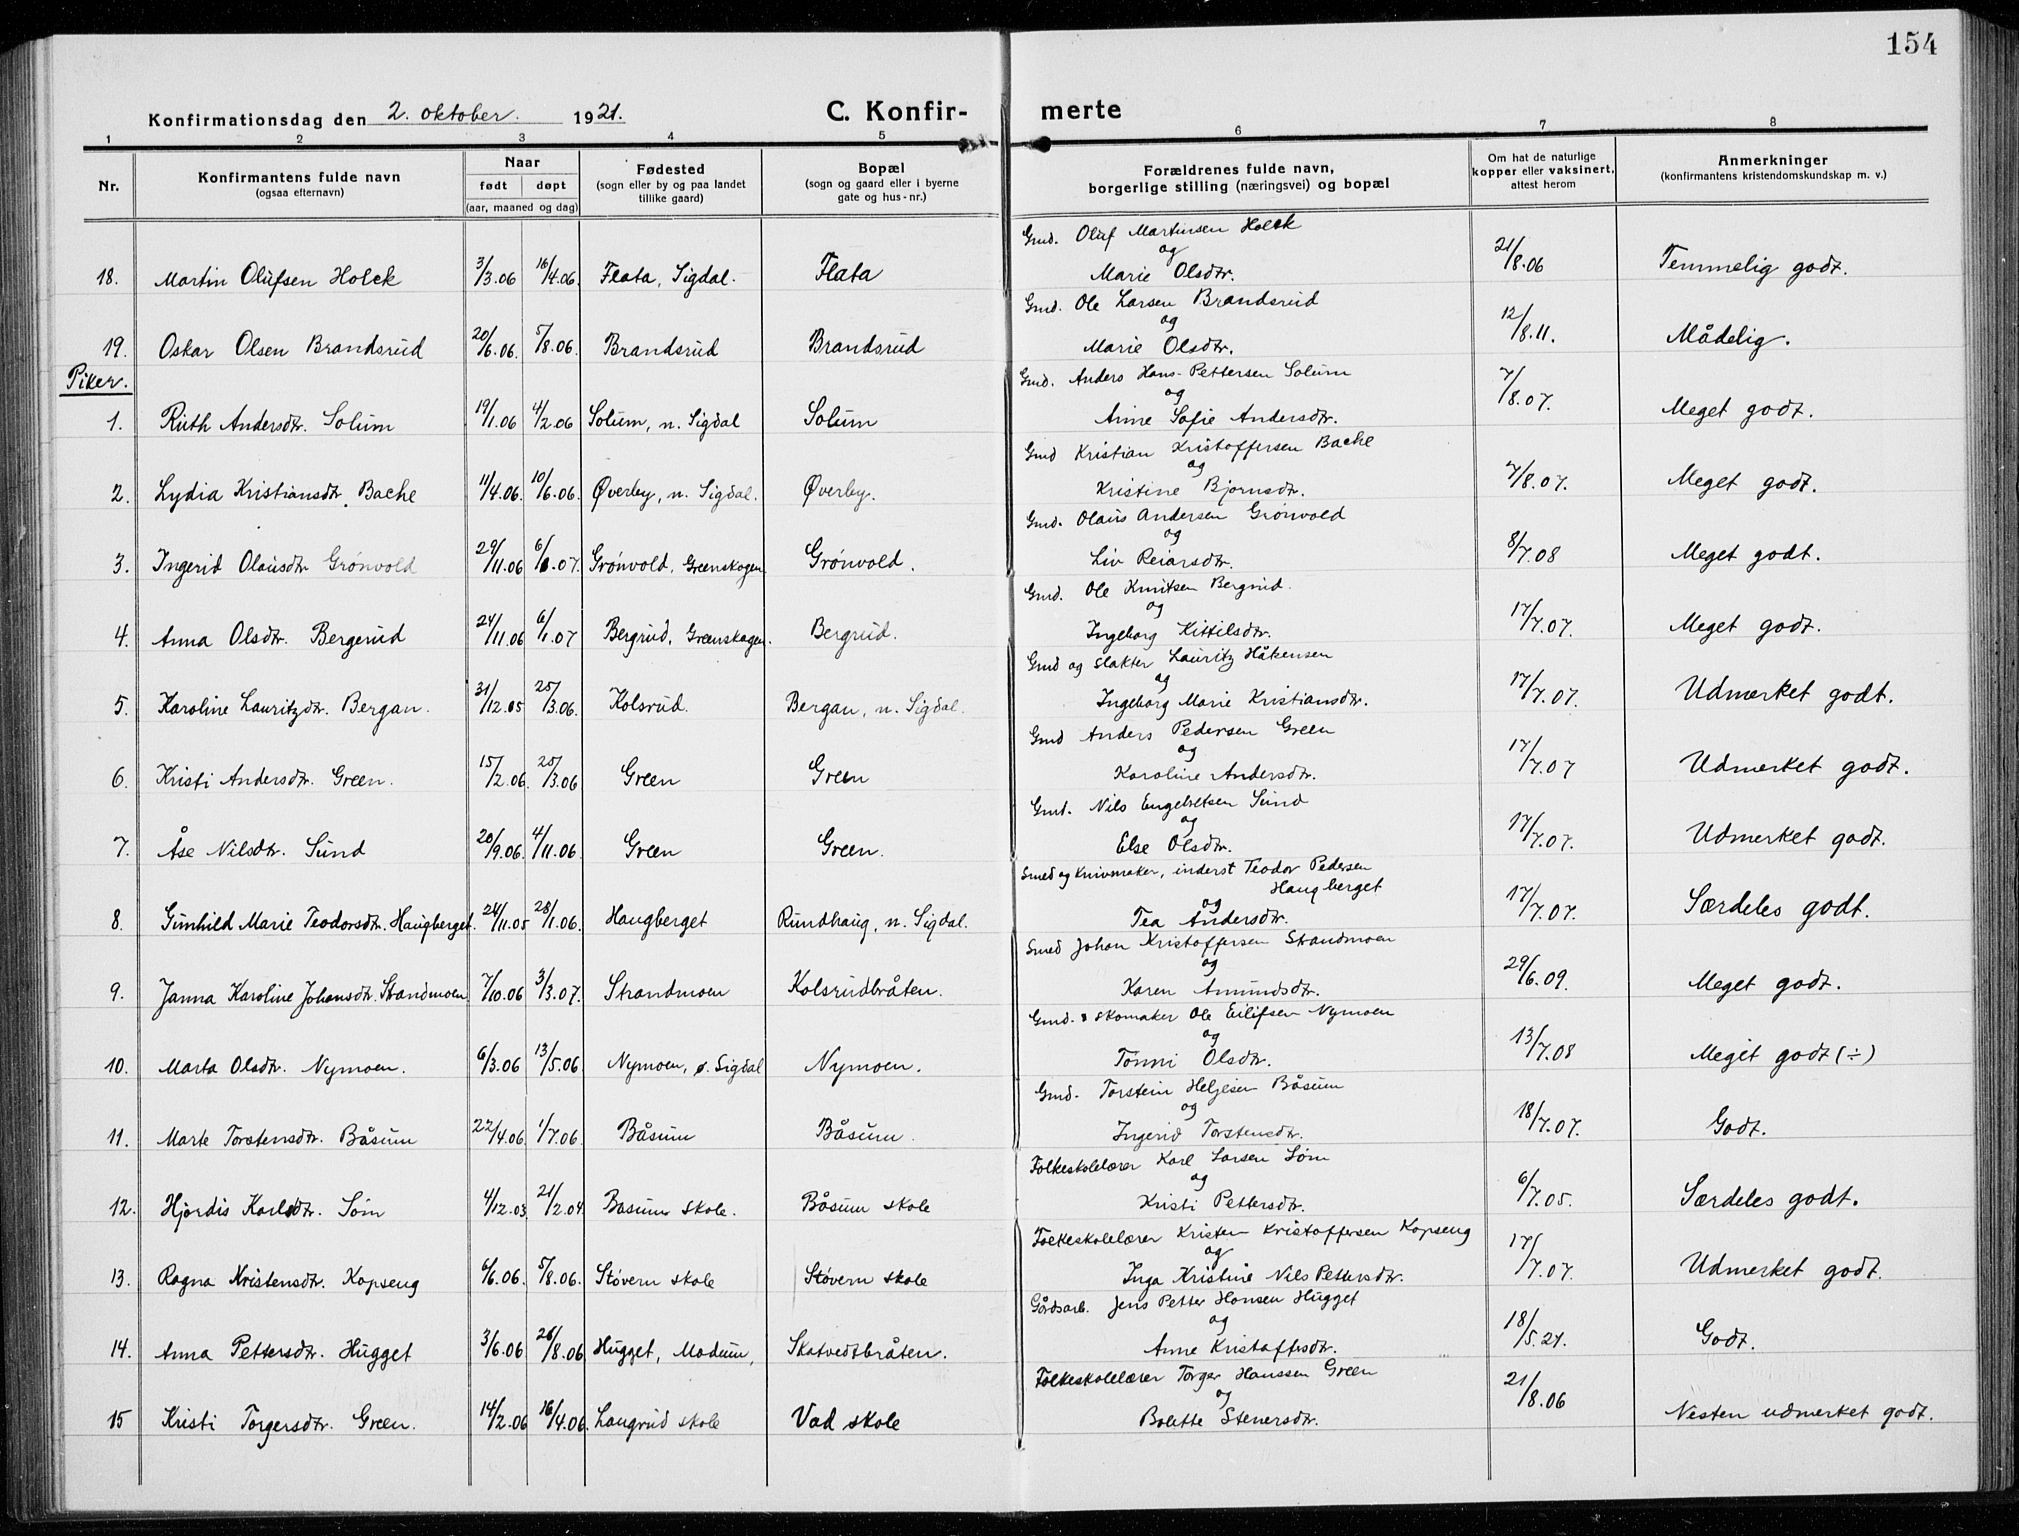 154
Konfirmationsdag den 2. oktober. 1921.
C. Konfir-
merte
1 2 3 4 5 6 7 8
Nr.
Konfirmantens fulde navn
(ogsaa efternavn)
Naar
født døpt
(aar, maaned og dag)
Fødested
(sogn eller by og paa landet
tillike gaard)
Bopæl
(sogn og gaard eller i byerne
gate og hus-nr.)
Forældrenes fulde navn,
borgerlige stilling (næringsvei) og bopæl
Om hat de naturlige
kopper eller vaksinert,
attest herom
Anmerkninger
(konfirmantens kristendomskundskap m. v.)
Gmd. Oluf Martinsen Holck
og
18. Martin Olufsen Holck 3/3.06 16/4.06. Flata, Sigdal. Flata Marie Olsdtr. 21/8.06 Temmelig godt.
Gmd. Ole Larsen Brandsrud
og
19. Oskar Olsen Brandsrud 20/6.06. 5/8.06. Brandsrud Brandsrud Marie Olsdtr. 12/8.11. Mådelig.
Piker.
Gmd. Anders Hans-Pettersen Solum
og
1. Ruth Andersdtr. Solum 19/1.06 4/2.06 Solum, n. Sigdal Solum Anne Sofie Andersdtr. 7/8.07. Meget godt.
Gmd Kristian Kristoffersen Bache
og
2. Lydia Kristiansdtr. Bache 11/4.06. 10/6.06. Øverby, n. Sigdal. Øverby. Kristine Bjørnsdtr. 7/8.07. Meget godt.
Gmd. Olaus Andersen Grønvold
og
3. Ingerid Olausdtr Grønvold 29/11.06 6/1.07. Grønvold, Greenskogen Grønvold. Liv Reiarsdtr. 8/7.08 Meget godt.
Gmd. Ole Knutsen Bergrud.
og
4. Anna Olsdtr. Bergerud 24/11.06 6/1.07 Bergrud, Greenskogen. Bergrud. Ingeborg Kittilsdtr. 17/7.07. Meget godt.
Gmd og slakter Lauritz Håkensen
og
5. Karoline Lauritzdtr. Bergan. 31/12.05 25/3.06. Kolsrud. Bergan, n. Sigdal. Ingeborg Marie Kristiansdtr. 17/7.07. Udmerket godt.
Gmd Anders Pedersen Green
og
6. Kristi Andersdtr. Green. 15/2.06. 25/3.06 Green Green Karoline Andersdtr. 17/7.07 Udmerket godt.
Gmd. Nils Engebretsen Sund
og
7. Åse Nilsdtr. Sund 20/9.06. 4/11.06. Green Green. Else Olsdtr. 17/7.07. Udmerket godt.
Smed og Knivmaker, inderst Teodor Pedersen
Haugberget
og
8. Gunhild Marie Teodorsdtr. Haugberget. 24/11.05 28/1.06. Haugberget Rundhaug, n. Sigdal. Tea Andersdtr. 17/7.07. Særdeles godt.
Smed Johan Kristoffersen Strandmoen
og
9. Janna Karoline Johansdtr. Strandmoen 7/10.06 3/3.07. Strandmoen Kolsrudbråten. Karen Amundsdtr. 29/6.09. Meget godt.
Gmd. & skomaker Ole Eilifsen Nymoen
og
10. Marta Olsdtr. Nymoen. 6/3.06 13/5.06 Nymoen, ø. Sigdal Nymoen. Tonni Olsdtr. 13/7.08 Meget godt (÷)
Gmd. Torstein Helgesen Båsum
og
11. Marte Torstensdtr. Båsum 22/4.06. 1/7.06. Båsum Båsum. Ingerid Torstensdtr. 18/7.07. Godt.
Folkeskolelærer Karl Larsen Søm
og
12. Hjørdis Karlsdtr. Søm 4/12.03 21/2.04 Basum skole. Båsum skole Kristi Pettersdtr. 6/7.05. Særdeles godt.
Folkeskolelærer Kristen Kristoffersen Kopseng
og
13. Ragna Kristensdtr. Kopseng 6/6.06. 5/8.06. Støvern skole Støvern skole Inga Kristine Nils Pettersdtr. 17/7.07. Udmerket godt.
Gårdsarb. Jens Petter Hansen Hugget
og
14. Anna Pettersdtr. Hugget 3/6.06 26/8.06 Hugget, Modum, Skatvedtbråten. Anne Kristoffsdtr. 18/5.21. Godt.
Folkeskolelærer Torger Hanssen Green
og
15 Kristi Torgersdtr. Green. 14/2.06 16/4.06. Laugrud skole Vad skole Bolette Stenersdtr. 21/8.06 Nesten udmerket godt.